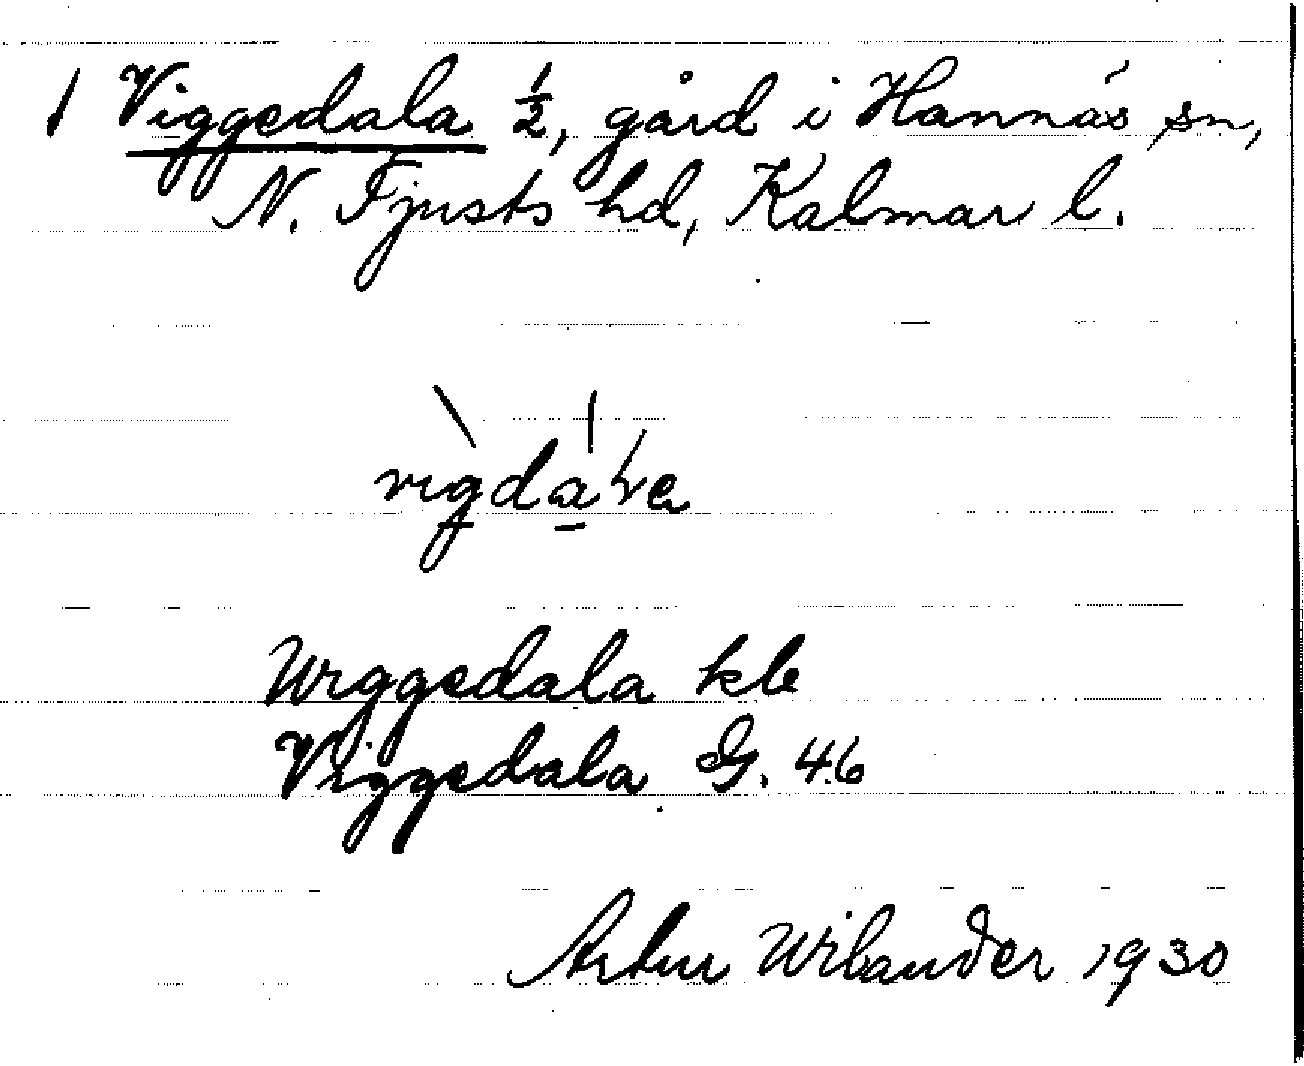 1 Viggedala ½, gård i Hannäs sn,
N. Tjusts hd, Kalmar l.
Wiggedala kle
Viggedala G. 46
Artur Wilander 1930